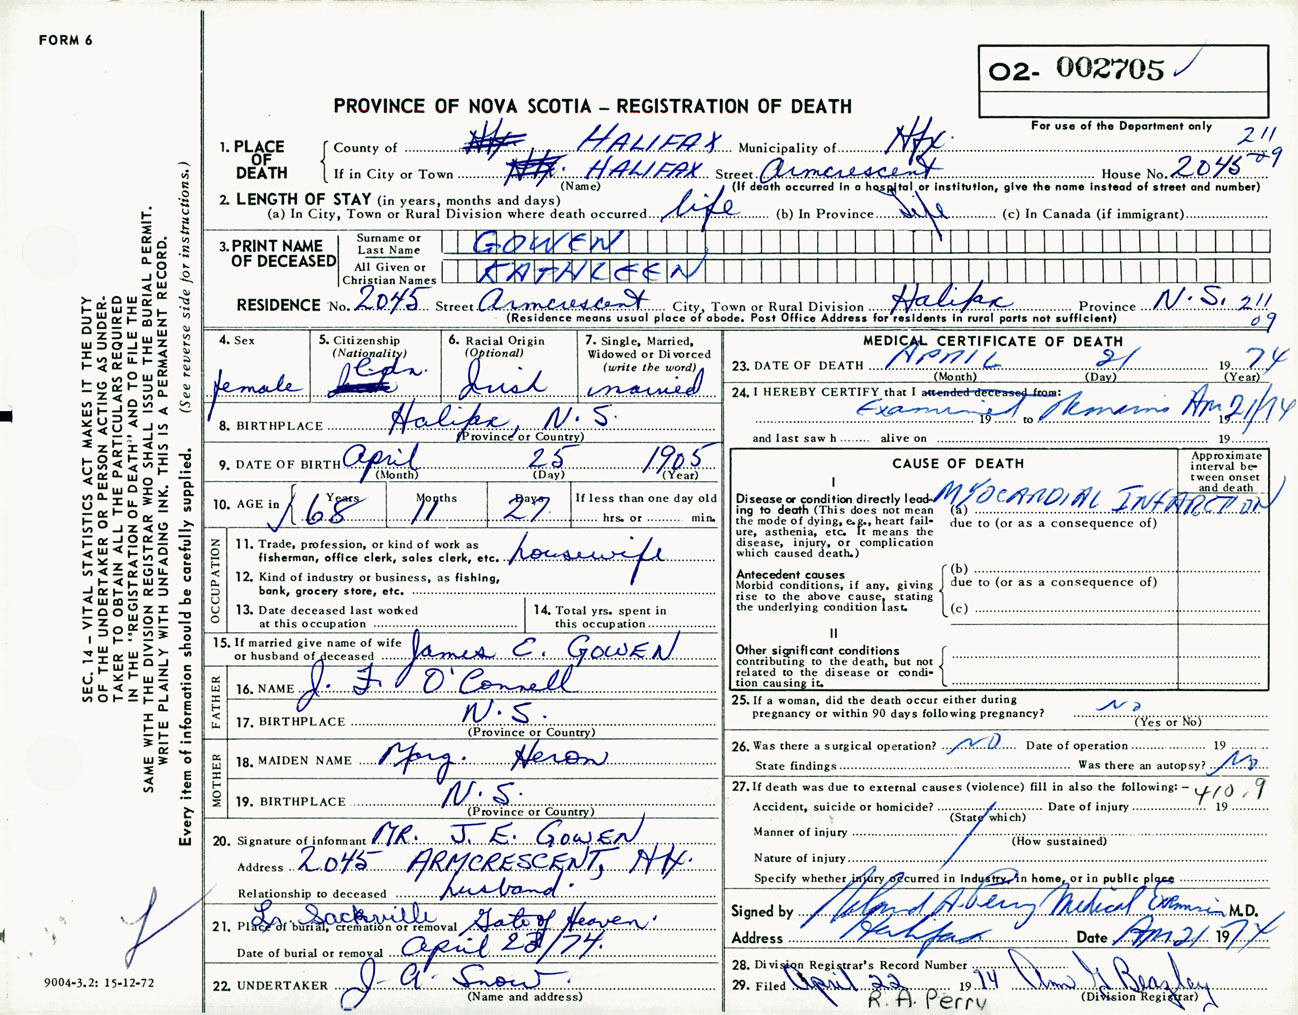 FORM 6
02- 002705
PROVINCE OF NOVA SCOTIA – REGISTRATION OF DEATH
For use of the Department only
211
09
1. PLACE OF DEATH
County of HALIFAX Municipality of Hfx.
If in City or Town HALIFAX Street Armcrescent House No. 2045
(Name) (If death occurred in a hospital or institution, give the name instead of street and number)
2. LENGTH OF STAY (in years, months and days)
(a) In City, Town or Rural Division where death occurred life (b) In Province life (c) In Canada (if immigrant)
3. PRINT NAME OF DECEASED
Surname or Last Name GOWEN
All Given or Christian Names KATHLEEN
RESIDENCE No. 2045 Street Armcrescent City, Town or Rural Division Halifax Province N.S. 211
(Residence means usual place of abode. Post Office Address for residents in rural parts not sufficient) 09
4. Sex female
5. Citizenship (Nationality) Cdn.
6. Racial Origin (Optional) Irish
7. Single, Married, Widowed or Divorced (write the word) married
8. BIRTHPLACE Halifax, N.S.
(Province or Country)
9. DATE OF BIRTH April 25 1905
(Month) (Day) (Year)
10. AGE in Years 68 Months 11 Days 27 If less than one day old
hrs. or min.
OCCUPATION
11. Trade, profession, or kind of work as fisherman, office clerk, sales clerk, etc. housewife
12. Kind of industry or business, as fishing, bank, grocery store, etc.
13. Date deceased last worked at this occupation
14. Total yrs. spent in this occupation
15. If married give name of wife or husband of deceased James E. GOWEN
FATHER
16. NAME J. F. O'Connell
17. BIRTHPLACE N.S.
(Province or Country)
MOTHER
18. MAIDEN NAME Marg. Heron
19. BIRTHPLACE N.S.
(Province or Country)
20. Signature of informant MR. J. E. GOWEN
Address 2045 ARMCRESCENT, Hfx.
Relationship to deceased husband.
21. Place of burial, cremation or removal Lr. Sackville Gate of Heaven.
Date of burial or removal April 23/74.
22. UNDERTAKER J. A. Snow.
(Name and address)
MEDICAL CERTIFICATE OF DEATH
23. DATE OF DEATH APRIL 21 1974
(Month) (Day) (Year)
24. I HEREBY CERTIFY that I attended deceased from:
Examined Remains Apr 21/74
19 to 19
and last saw h alive on 19
CAUSE OF DEATH
Approximate interval between onset and death
I
Disease or condition directly leading to death (This does not mean the mode of dying, e.g., heart failure, asthenia, etc. It means the disease, injury, or complication which caused death.)
(a) MYOCARDIAL INFARCTION
due to (or as a consequence of)
Antecedent causes
Morbid conditions, if any, giving rise to the above cause, stating the underlying condition last.
(b)
due to (or as a consequence of)
(c)
II
Other significant conditions
contributing to the death, but not related to the disease or condition causing it.
25. If a woman, did the death occur either during pregnancy or within 90 days following pregnancy? No
(Yes or No)
26. Was there a surgical operation? NO Date of operation 19
State findings Was there an autopsy? No
27. If death was due to external causes (violence) fill in also the following: – 410.9
Accident, suicide or homicide? Date of injury 19
(State which)
Manner of injury
(How sustained)
Nature of injury
Specify whether injury occurred in Industry, in home, or in public place
Signed by Roland A. Perry Medical Examiner M.D.
Address Halifax Date Apr 21 1974
28. Division Registrar's Record Number
29. Filed April 22 1974 Ann G Beazley
(Division Registrar)
R. A. Perry
SEC. 14 – VITAL STATISTICS ACT MAKES IT THE DUTY
OF THE UNDERTAKER OR PERSON ACTING AS UNDER-
TAKER TO OBTAIN ALL THE PARTICULARS REQUIRED
IN THE "REGISTRATION OF DEATH" AND TO FILE THE
SAME WITH THE DIVISION REGISTRAR WHO SHALL ISSUE THE BURIAL PERMIT.
WRITE PLAINLY WITH UNFADING INK. THIS IS A PERMANENT RECORD.
Every item of information should be carefully supplied. (See reverse side for instructions.)
9004-3.2: 15-12-72